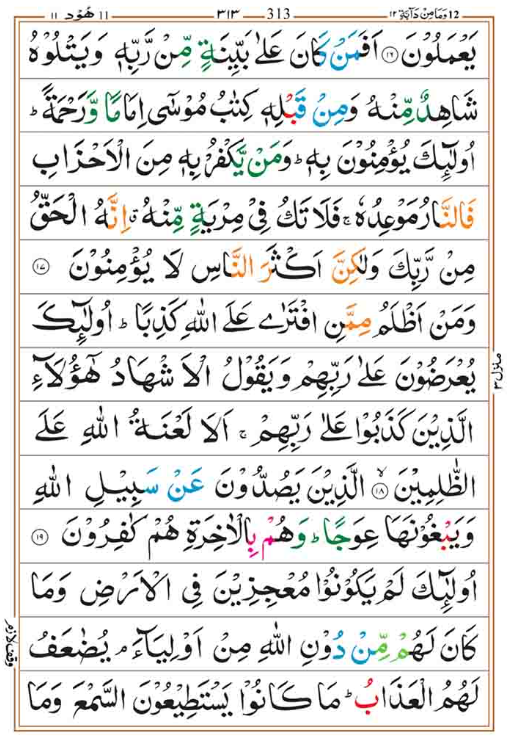 ١١ هُوْد ١١ ٣١٣ 313 وَمَا مِنْ دَآبَّةٍ ١٢ 12
يَعْمَلُوْنَ ﴿۱۶﴾ اَفَمَنْ كَانَ عَلٰى بَيِّنَةٍ مِّنْ رَّبِّهٖ وَيَتْلُوْهُ
شَاهِدٌ مِّنْهُ وَمِنْ قَبْلِهٖ كِتٰبُ مُوْسٰٓى اِمَامًا وَّ رَحْمَةً ؕ
اُولٰٓئِكَ يُؤْمِنُوْنَ بِهٖ ؕ وَمَنْ يَّكْفُرْ بِهٖ مِنَ الْاَحْزَابِ
فَالنَّارُ مَوْعِدُهٗ ۚ فَلَا تَكُ فِىْ مِرْيَةٍ مِّنْهُ ۗ اِنَّهُ الْحَقُّ
مِنْ رَّبِّكَ وَلٰكِنَّ اَكْثَرَ النَّاسِ لَا يُؤْمِنُوْنَ ﴿۱۷﴾
وَمَنْ اَظْلَمُ مِمَّنِ افْتَرٰى عَلَى اللّٰهِ كَذِبًا ؕ اُولٰٓئِكَ
يُعْرَضُوْنَ عَلٰى رَبِّهِمْ وَيَقُوْلُ الْاَشْهَادُ هٰٓؤُلَآءِ
الَّذِيْنَ كَذَبُوْا عَلٰى رَبِّهِمْ ۚ اَلَا لَعْنَةُ اللّٰهِ عَلَى
الظّٰلِمِيْنَ ۙ﴿۱۸﴾ الَّذِيْنَ يَصُدُّوْنَ عَنْ سَبِيْلِ اللّٰهِ
وَيَبْغُوْنَهَا عِوَجًا ؕ وَهُمْ بِالْاٰخِرَةِ هُمْ كٰفِرُوْنَ ﴿۱۹﴾
اُولٰٓئِكَ لَمْ يَكُوْنُوْا مُعْجِزِيْنَ فِى الْاَرْضِ وَمَا
كَانَ لَهُمْ مِّنْ دُوْنِ اللّٰهِ مِنْ اَوْلِيَآءَ ۘ يُضٰعَفُ
لَهُمُ الْعَذَابُ ؕ مَا كَانُوْا يَسْتَطِيْعُوْنَ السَّمْعَ وَمَا
منزل ٣
وقف لازم